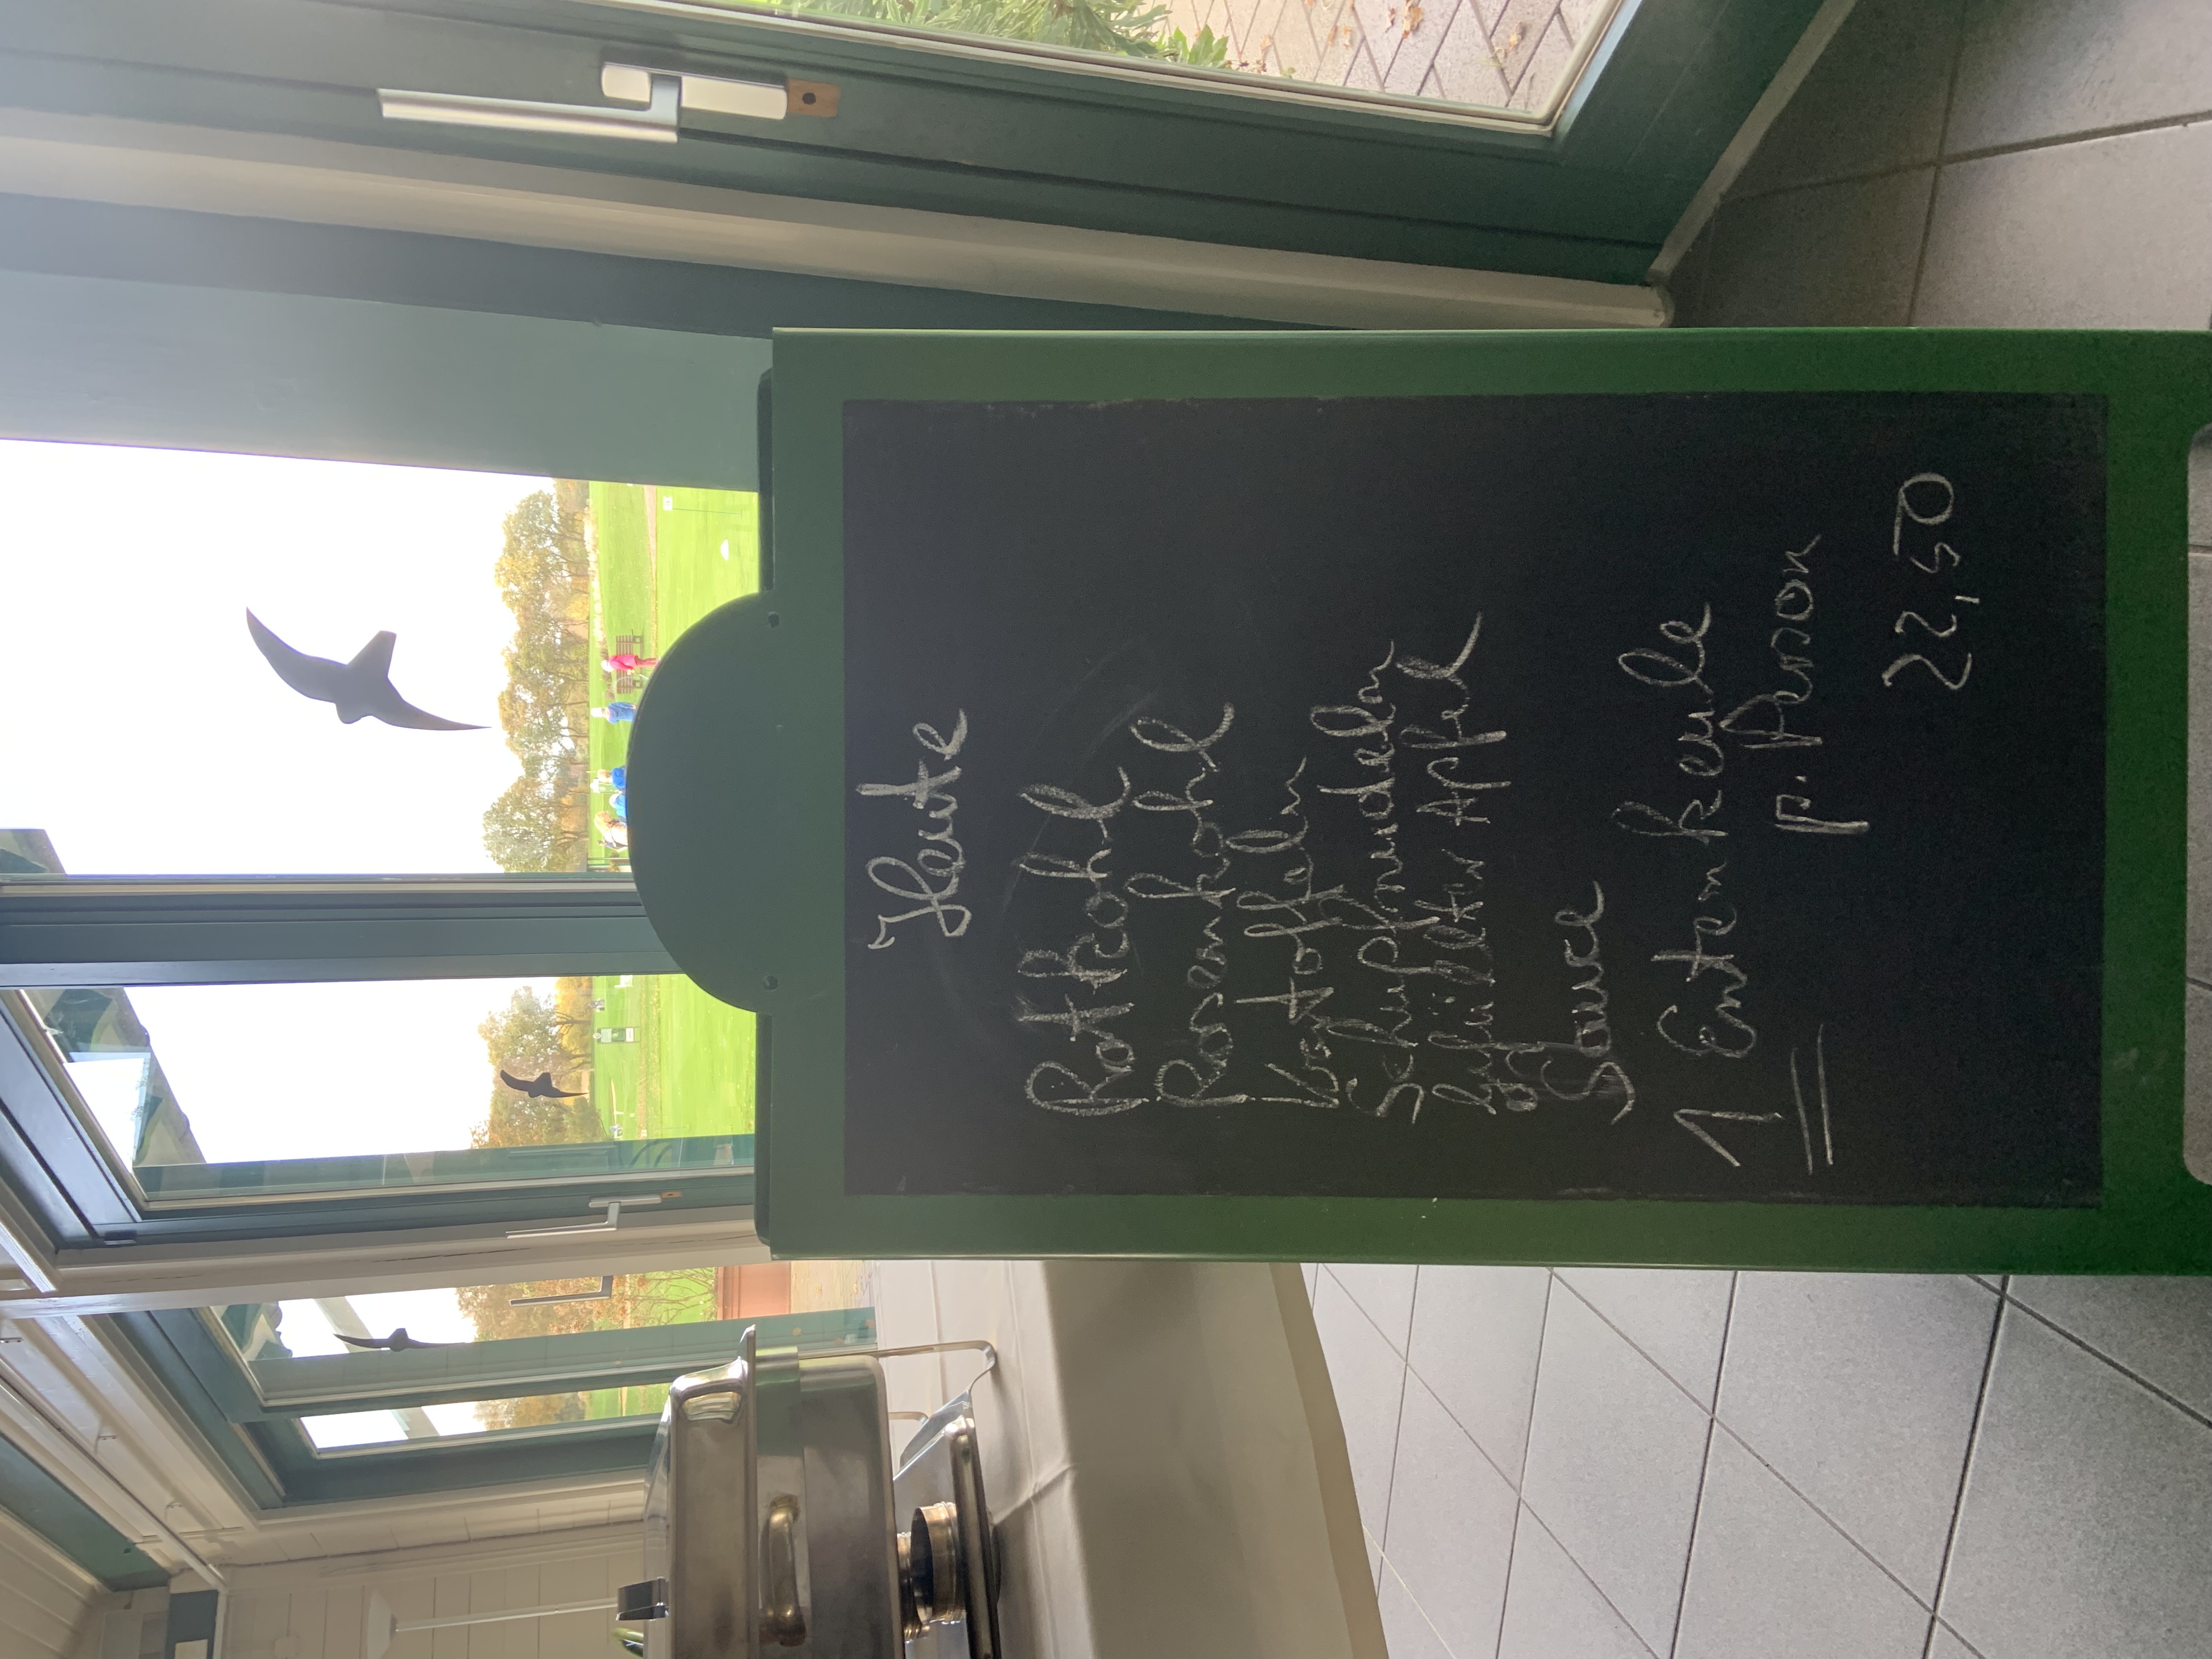 Heute
Rotkohl
Rosenkohl
Kartoffeln
Schupfnudeln
gefüllter Apfel
Sauce
1 Entenkeule
p. Person
22,50